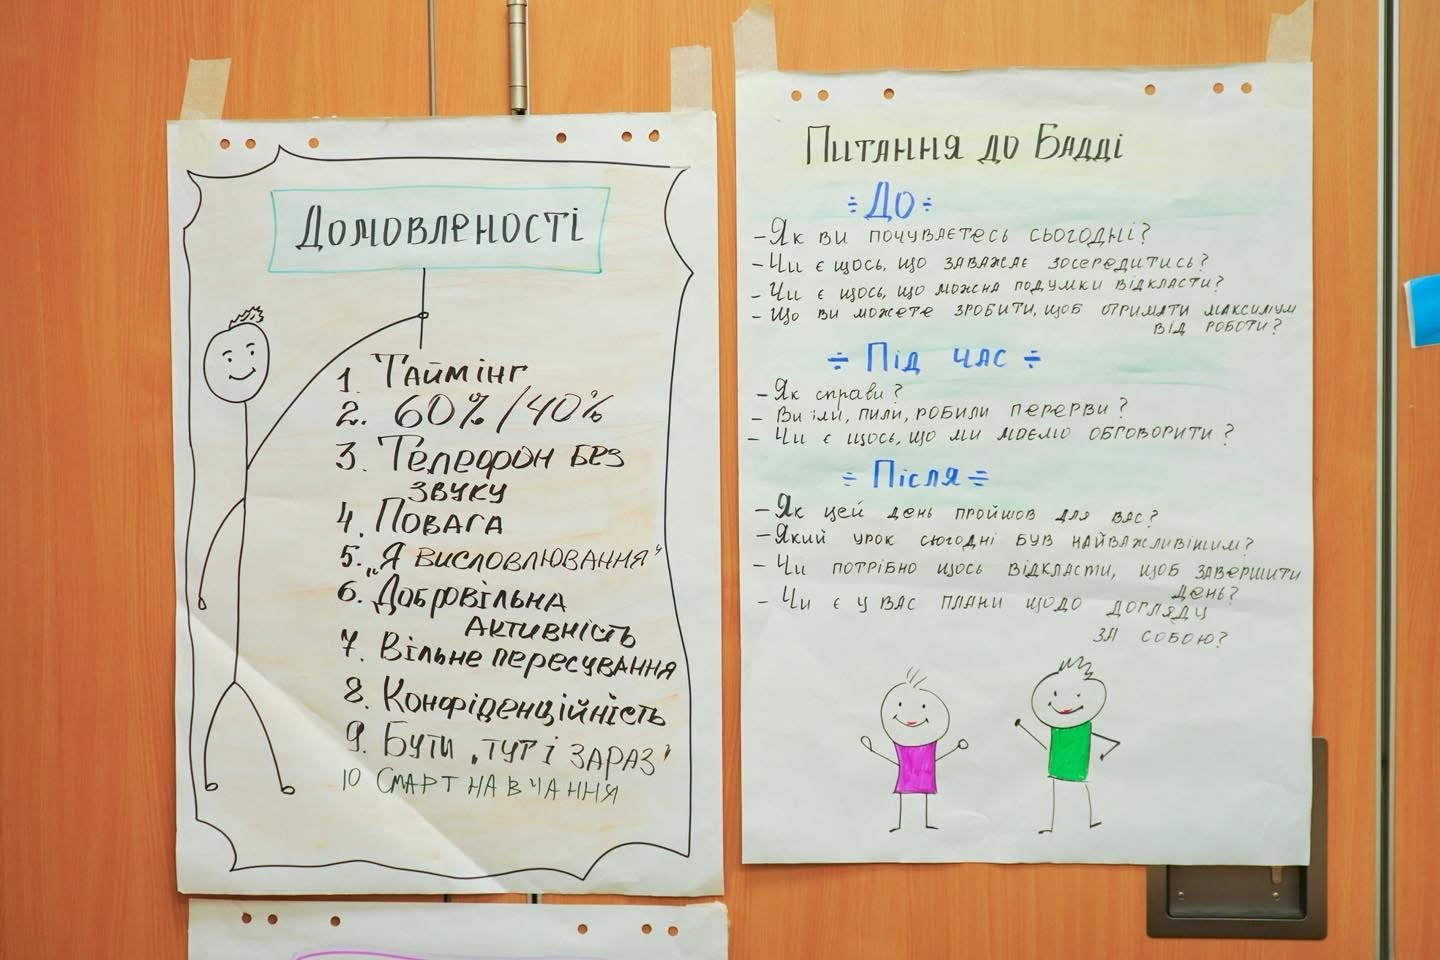 Домовленості
1. Таймінг
2. 60% / 40%
3. Телефон без
звуку
4. Повага
5. „Я висловлювання"
6. Добровільна
активність
7. Вільне пересування
8. Конфіденційність
9. Бути „тут і зараз"
10 Смарт навчання
Питання до Бадді
÷ До ÷
- Як ви почуваєтесь сьогодні?
- Чи є щось, що заважає зосередитись?
- Чи є щось, що можна подумки відкласти?
- Що ви можете зробити, щоб отримати максимум
від роботи?
÷ Під час ÷
- Як справи?
- Ви їли, пили, робили перерви?
- Чи є щось, що ми можемо обговорити?
÷ Після ÷
- Як цей день пройшов для вас?
- Який урок сьогодні був найважливішим?
- Чи потрібно щось відкласти, щоб завершити
день?
- Чи є у вас плани щодо догляду
за собою?